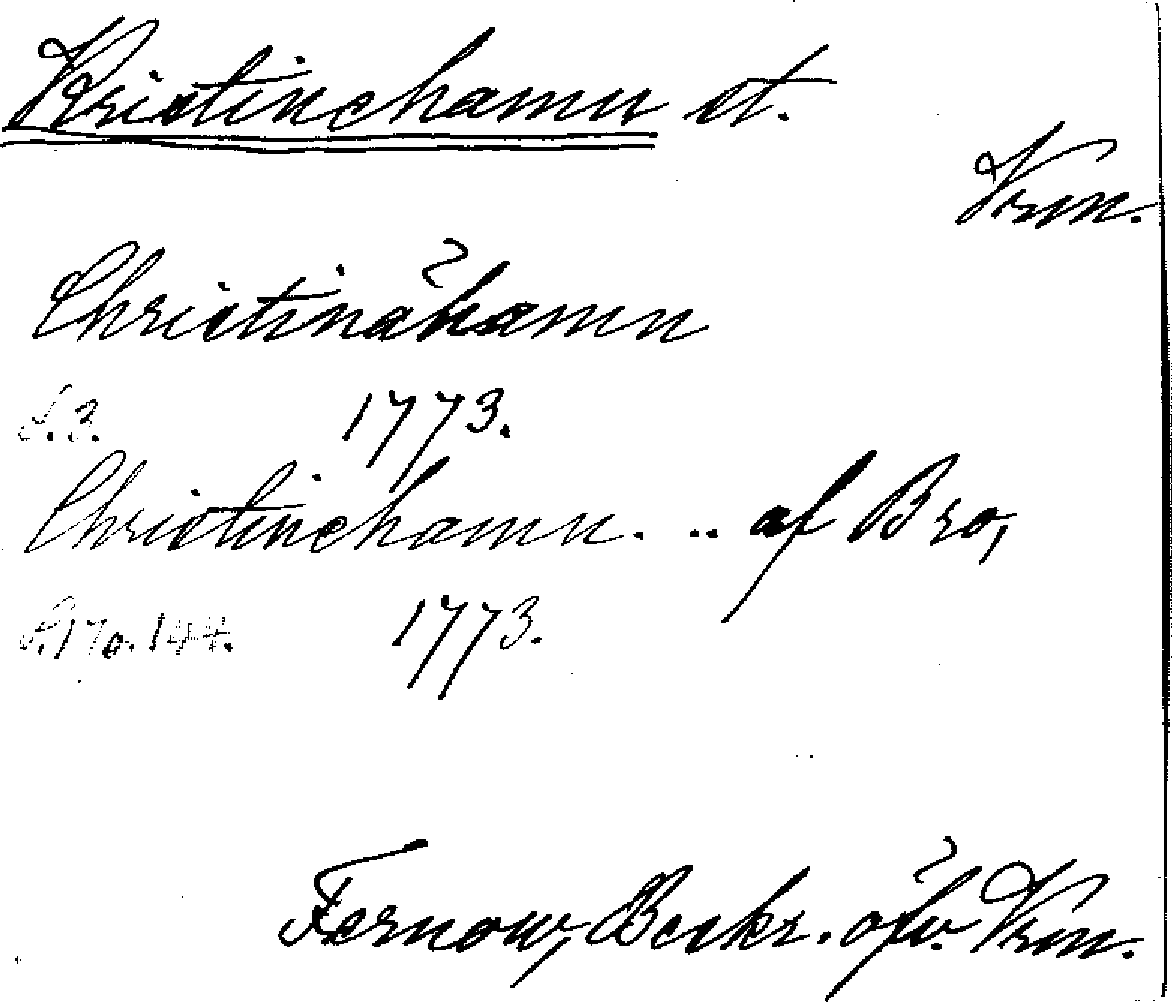 Kristinehamn st.
Vrm.
Christinæhamn
s. 3. 1773.
Christinehamn. .. af Bro,
s. 170. 144. 1773.
Fernow, Beskr. öfv. Vrm.